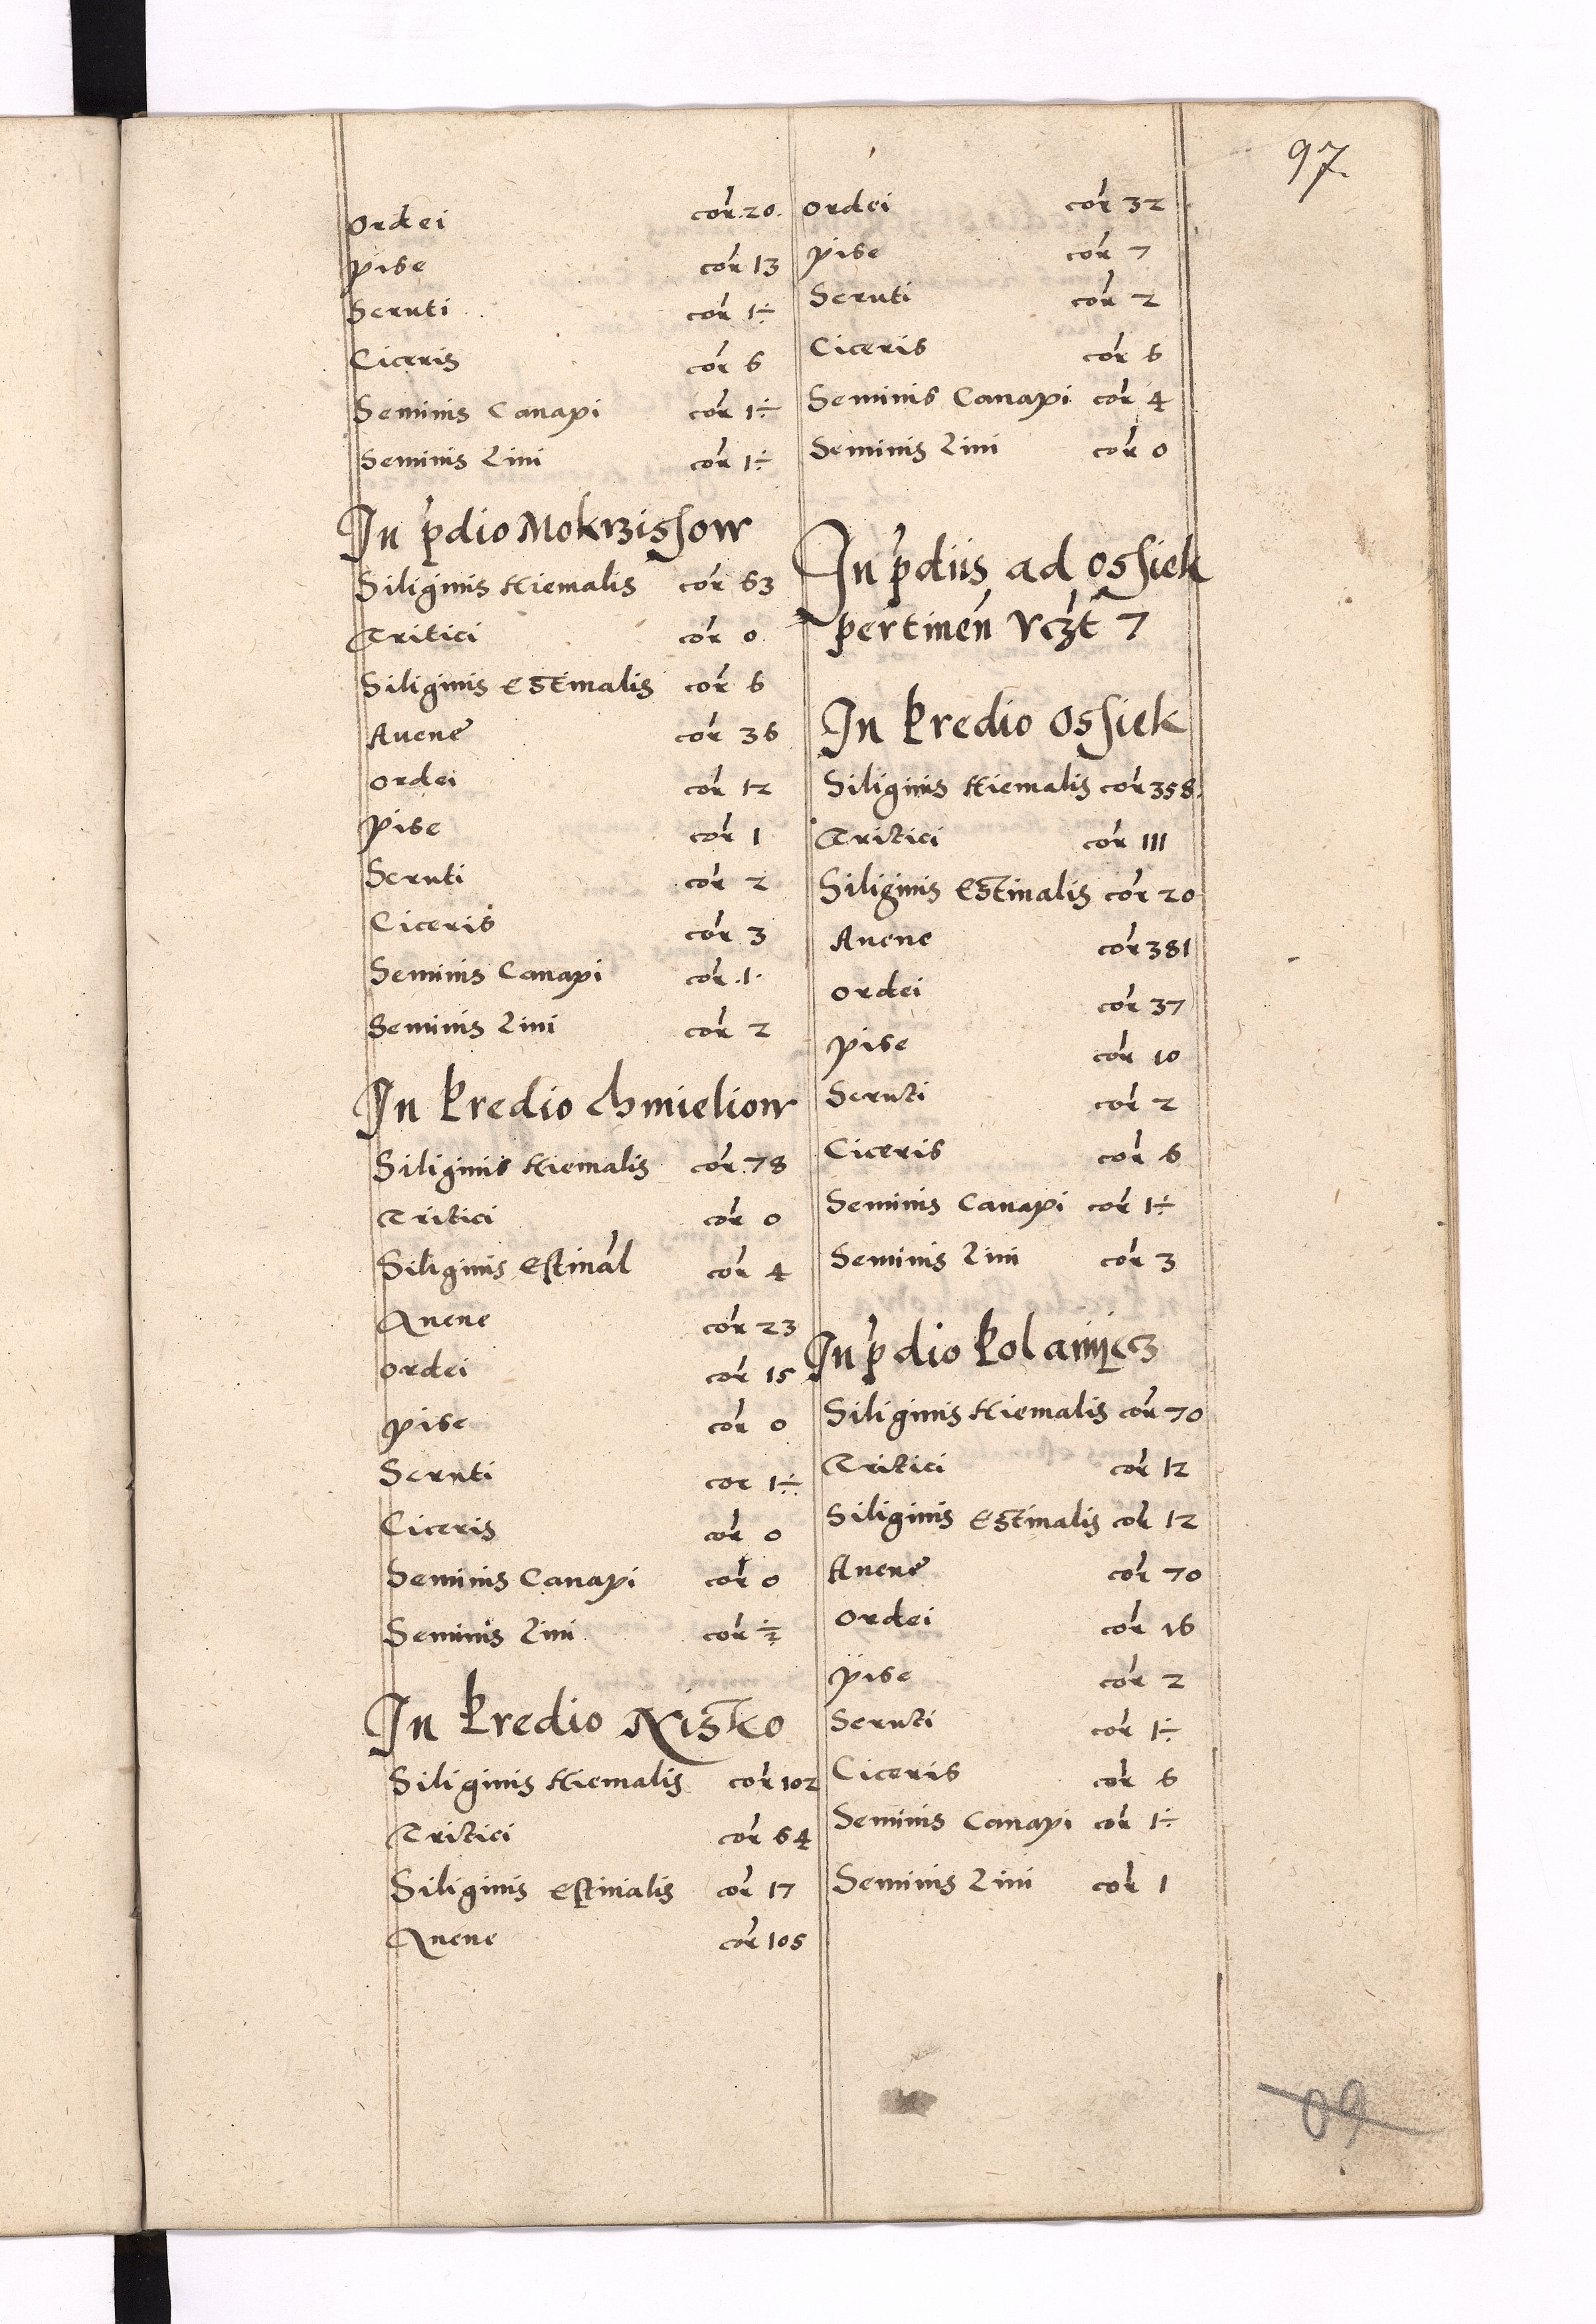 97.
Ordei cor 20.
Pise cor 13
Seruti cor 1÷
Ciceris cor 6
Seminis Canapi cor 1÷
Seminis Lini cor 1÷
In pdio Mokrzissow
Siliginis Hiemalis cor 63
Tritici cor 0
Siliginis Estiualis cor 6
Auene cor 36
Ordei cor 12
Pise cor 1
Seruti cor 2
Ciceris cor 3
Seminis Canapi cor .1.
Seminis Lini cor 2
In Predio Chmieliow
Siliginis Hiemalis cor 78
Tritici cor 0
Siliginis Estiual cor 4
Auene cor 23
Ordei cor 15
Pise cor 0
Seruti cor 1÷
Ciceris cor 0
Seminis Canapi cor 0
Seminis Lini cor ½
In Predio Nisko
Siliginis Hiemalis cor 102
Tritici cor 64
Siliginis Estiualis cor 17
Auene cor 105
Ordei cor 32
Pise cor 7
Seruti cor 2
Ciceris cor 6
Seminis Canapi cor 4
Seminis Lini cor 0
In pdiis ad Ossiek
pertinen vczt 7
In Predio Ossiek
Siliginis Hiemalis cor 358.
Tritici cor 111
Siliginis Estiualis cor 20
Auene cor 381
Ordei cor 37
Pise cor 10
Seruti cor 2
Ciceris cor 6
Seminis Canapi cor 1÷
Seminis Lini cor 3
In pdio Polaniecz
Siliginis Hiemalis cor 70
Tritici cor 12
Siliginis Estiualis cor 12
Auene cor 70
Ordei cor 16
Pise cor 2
Seruti cor 1÷
Ciceris cor 6
Seminis Canapi cor 1÷
Seminis Lini cor 1